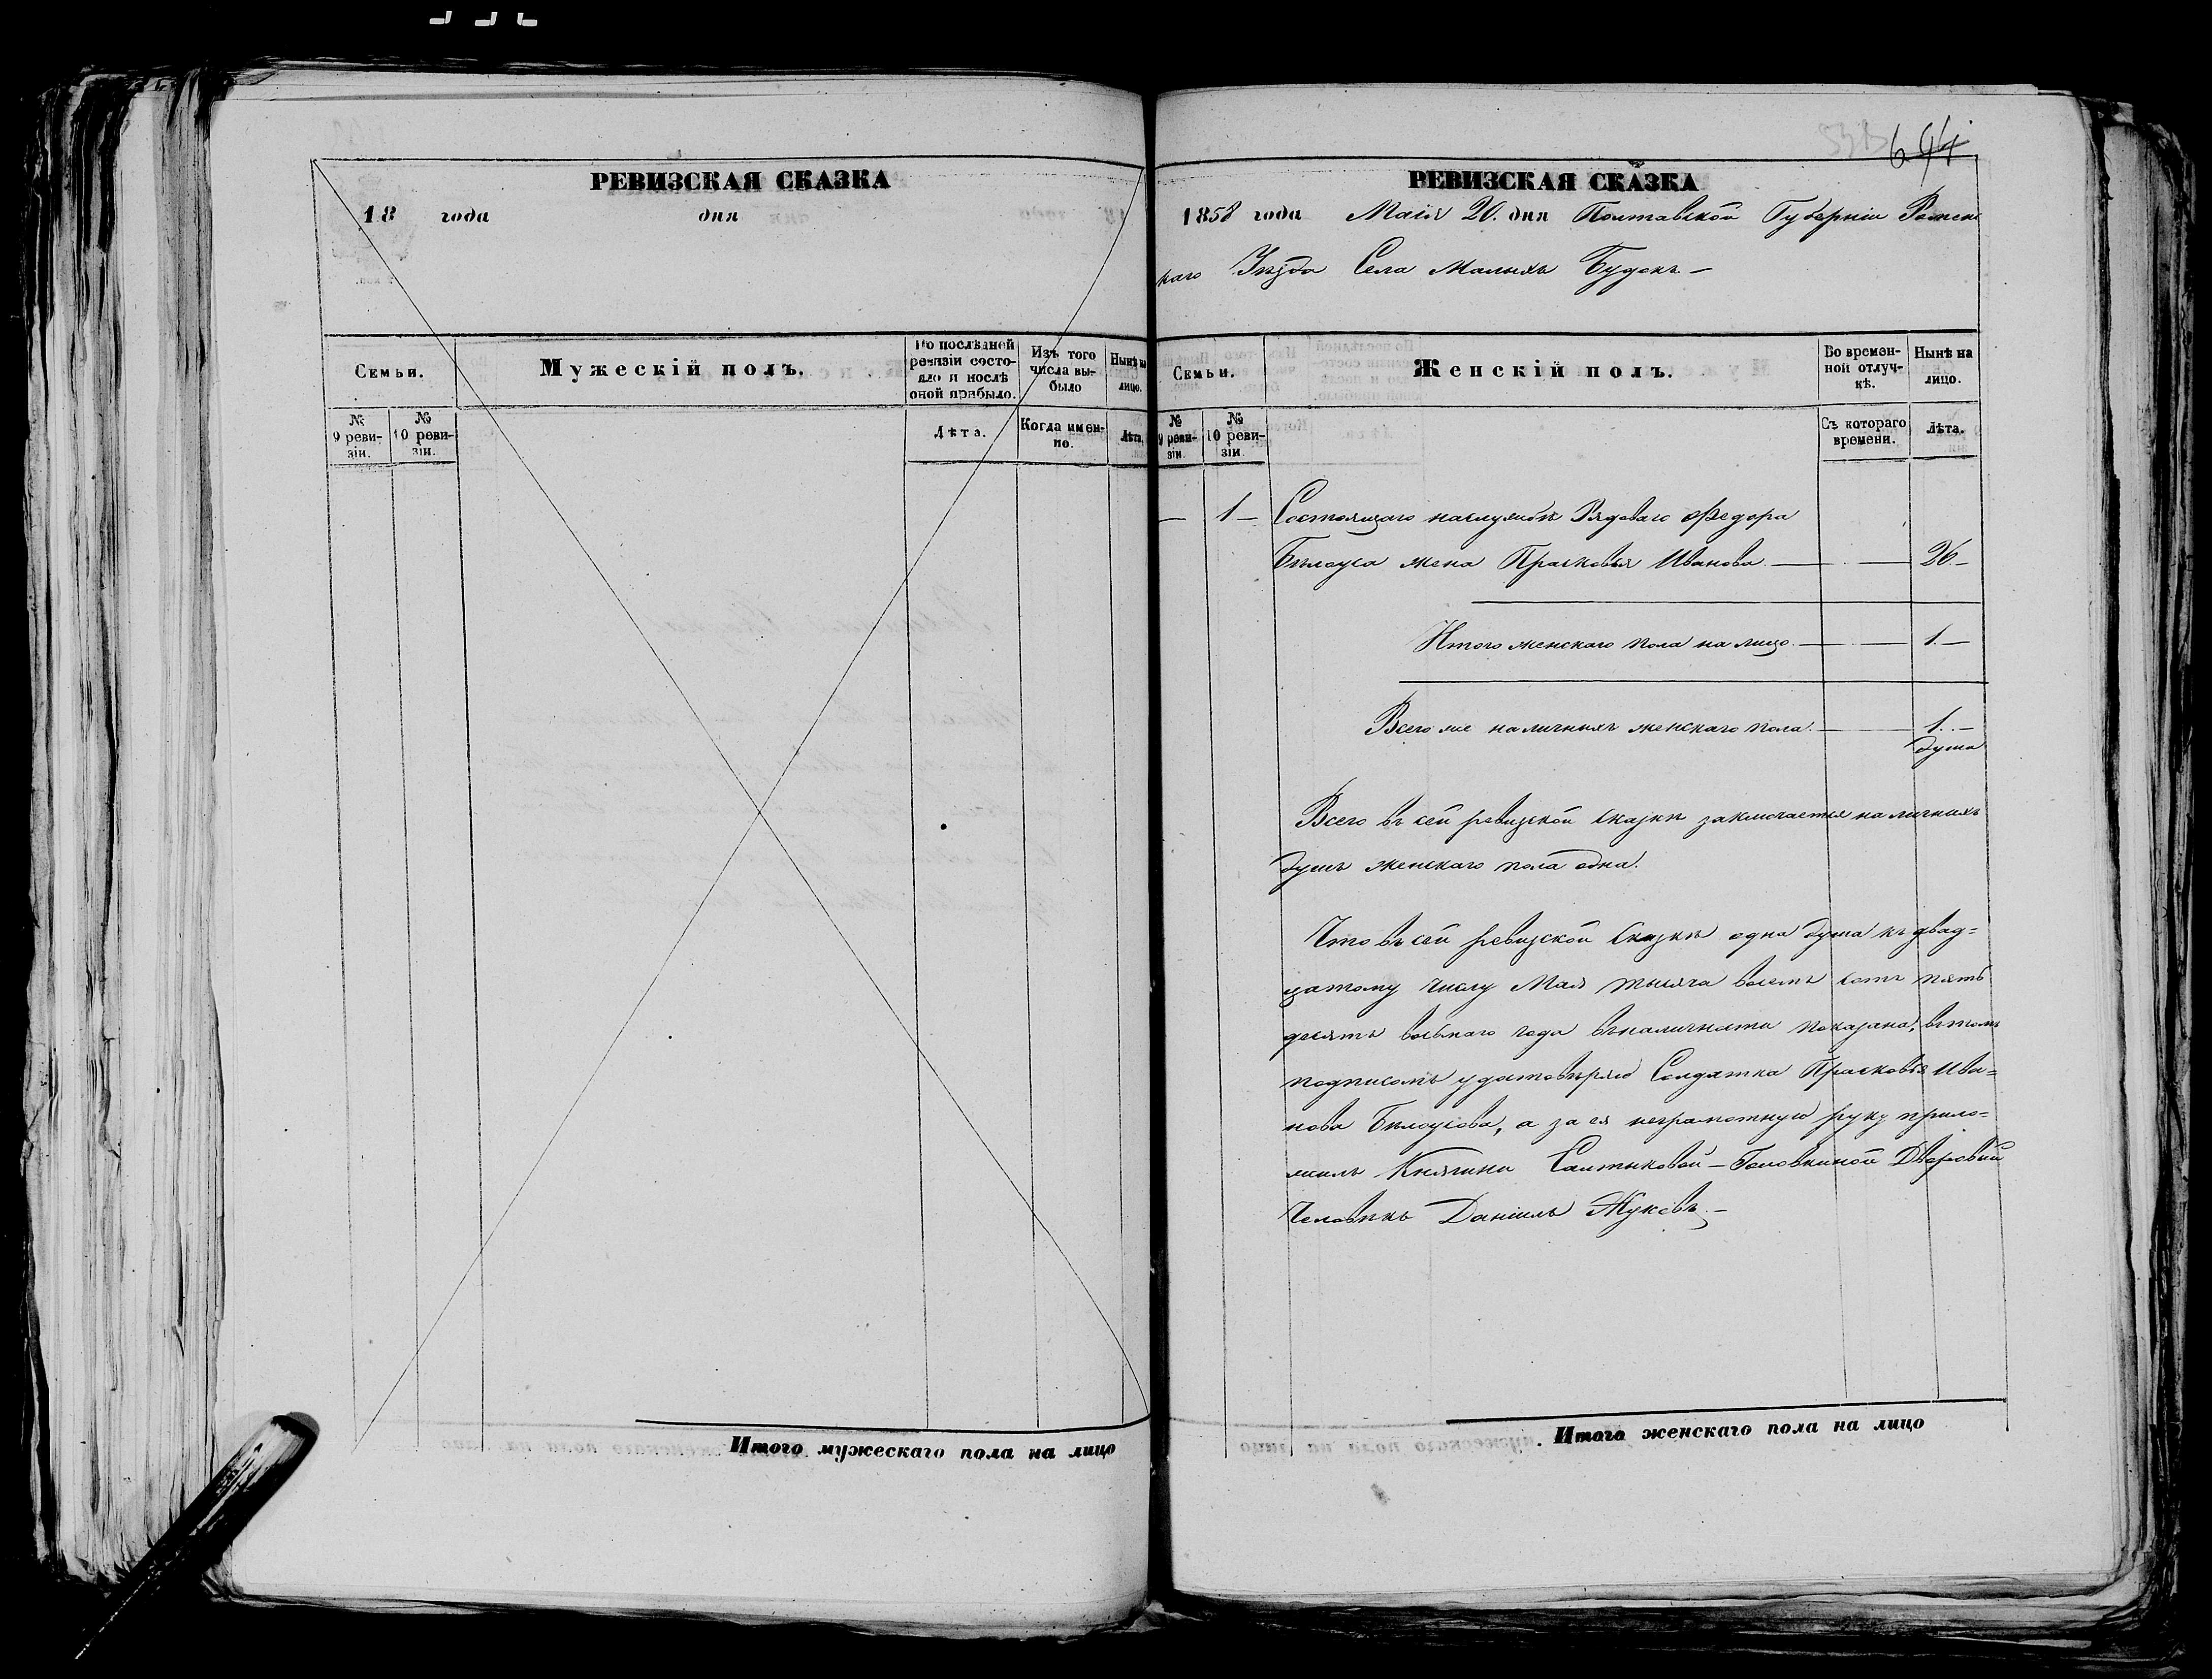 РЕВИЗСКАЯ СКАЗКА
18 года дня
Семьи.
Мужескій полъ.
По послѣдней ревизіи состояло и послѣ оной прибыло.
Изъ того числа выбыло
Нынѣ на лицо.
№ 9 ревизіи.
№ 10 ревизіи.
Лѣта.
Когда именно.
Лѣта.
Итого мужескаго пола на лицо
644
РЕВИЗСКАЯ СКАЗКА
1858 года Маія 20. дня Полтавской Губерніи Ромен
каго Уѣзда Села Малыхъ Будокъ —
Семьи.
Женскій полъ.
Во временной отлучкѣ.
Нынѣ на лицо.
№ 9 ревизіи.
№ 10 ревизіи.
Съ котораго времени.
Лѣта.
— 1 — Состоящаго наслужбѣ Рядоваго Федора
Бѣлоуса жена Прасковья Иванова — — 26 —
Итого женскаго пола на лицо — — 1. —
Всего же наличныхъ женскаго пола — 1. —
душа
Всего въ сей ревизской сказкѣ заключается наличныхъ
душъ женскаго пола одна.
Что въ сей ревизской сказкѣ одна душа къ двад=
цатому числу Мая тысяча восемь сотъ пять
десятъ восьмаго года въналичности показана, въ томъ
подписомъ удостовѣряю Солдатка Прасковья Ива=
нова Бѣлоусова, а за ея неграмотную руку прило=
жилъ Княгини Салтыковой — Головкиной Дворовый
Человѣкъ Даніилъ Жуковъ. —
Итого женскаго пола на лицо